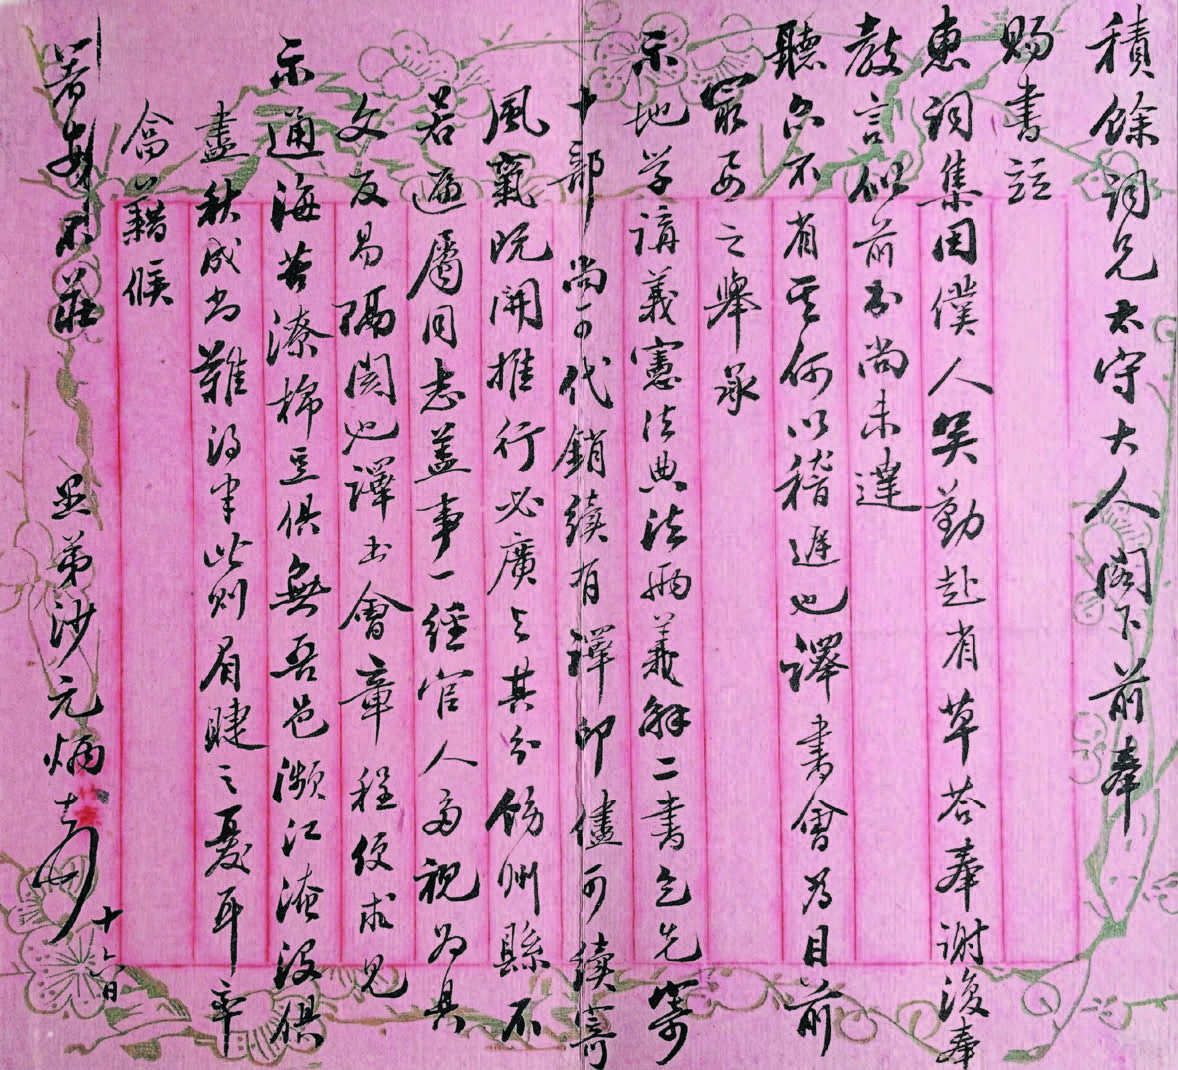 積餘詞兄太守大人閣下前奉
賜書並
惠詞集因僕人吳勤赴省草荅奉謝復奉
教言似前書尚未達
聽亦不省其何以稽遲也譯書會為目前
最要之舉承
示地學講義憲法典法兩義解二書乞先寄
十部尚可代銷續有譯印儘可續寄
風氣既開推行必廣與其分飭州縣不
若遍屬同志蓋事一經官人每視為具
文反易隔閡也譯書會章程便求見
示通海苦潦棉豆俱無吾邑瀕江淹沒俱
盡秋成尚難得半此則眉睫之憂耳率
畣藉候
著安不莊 愚弟沙元炳頓首
十六日